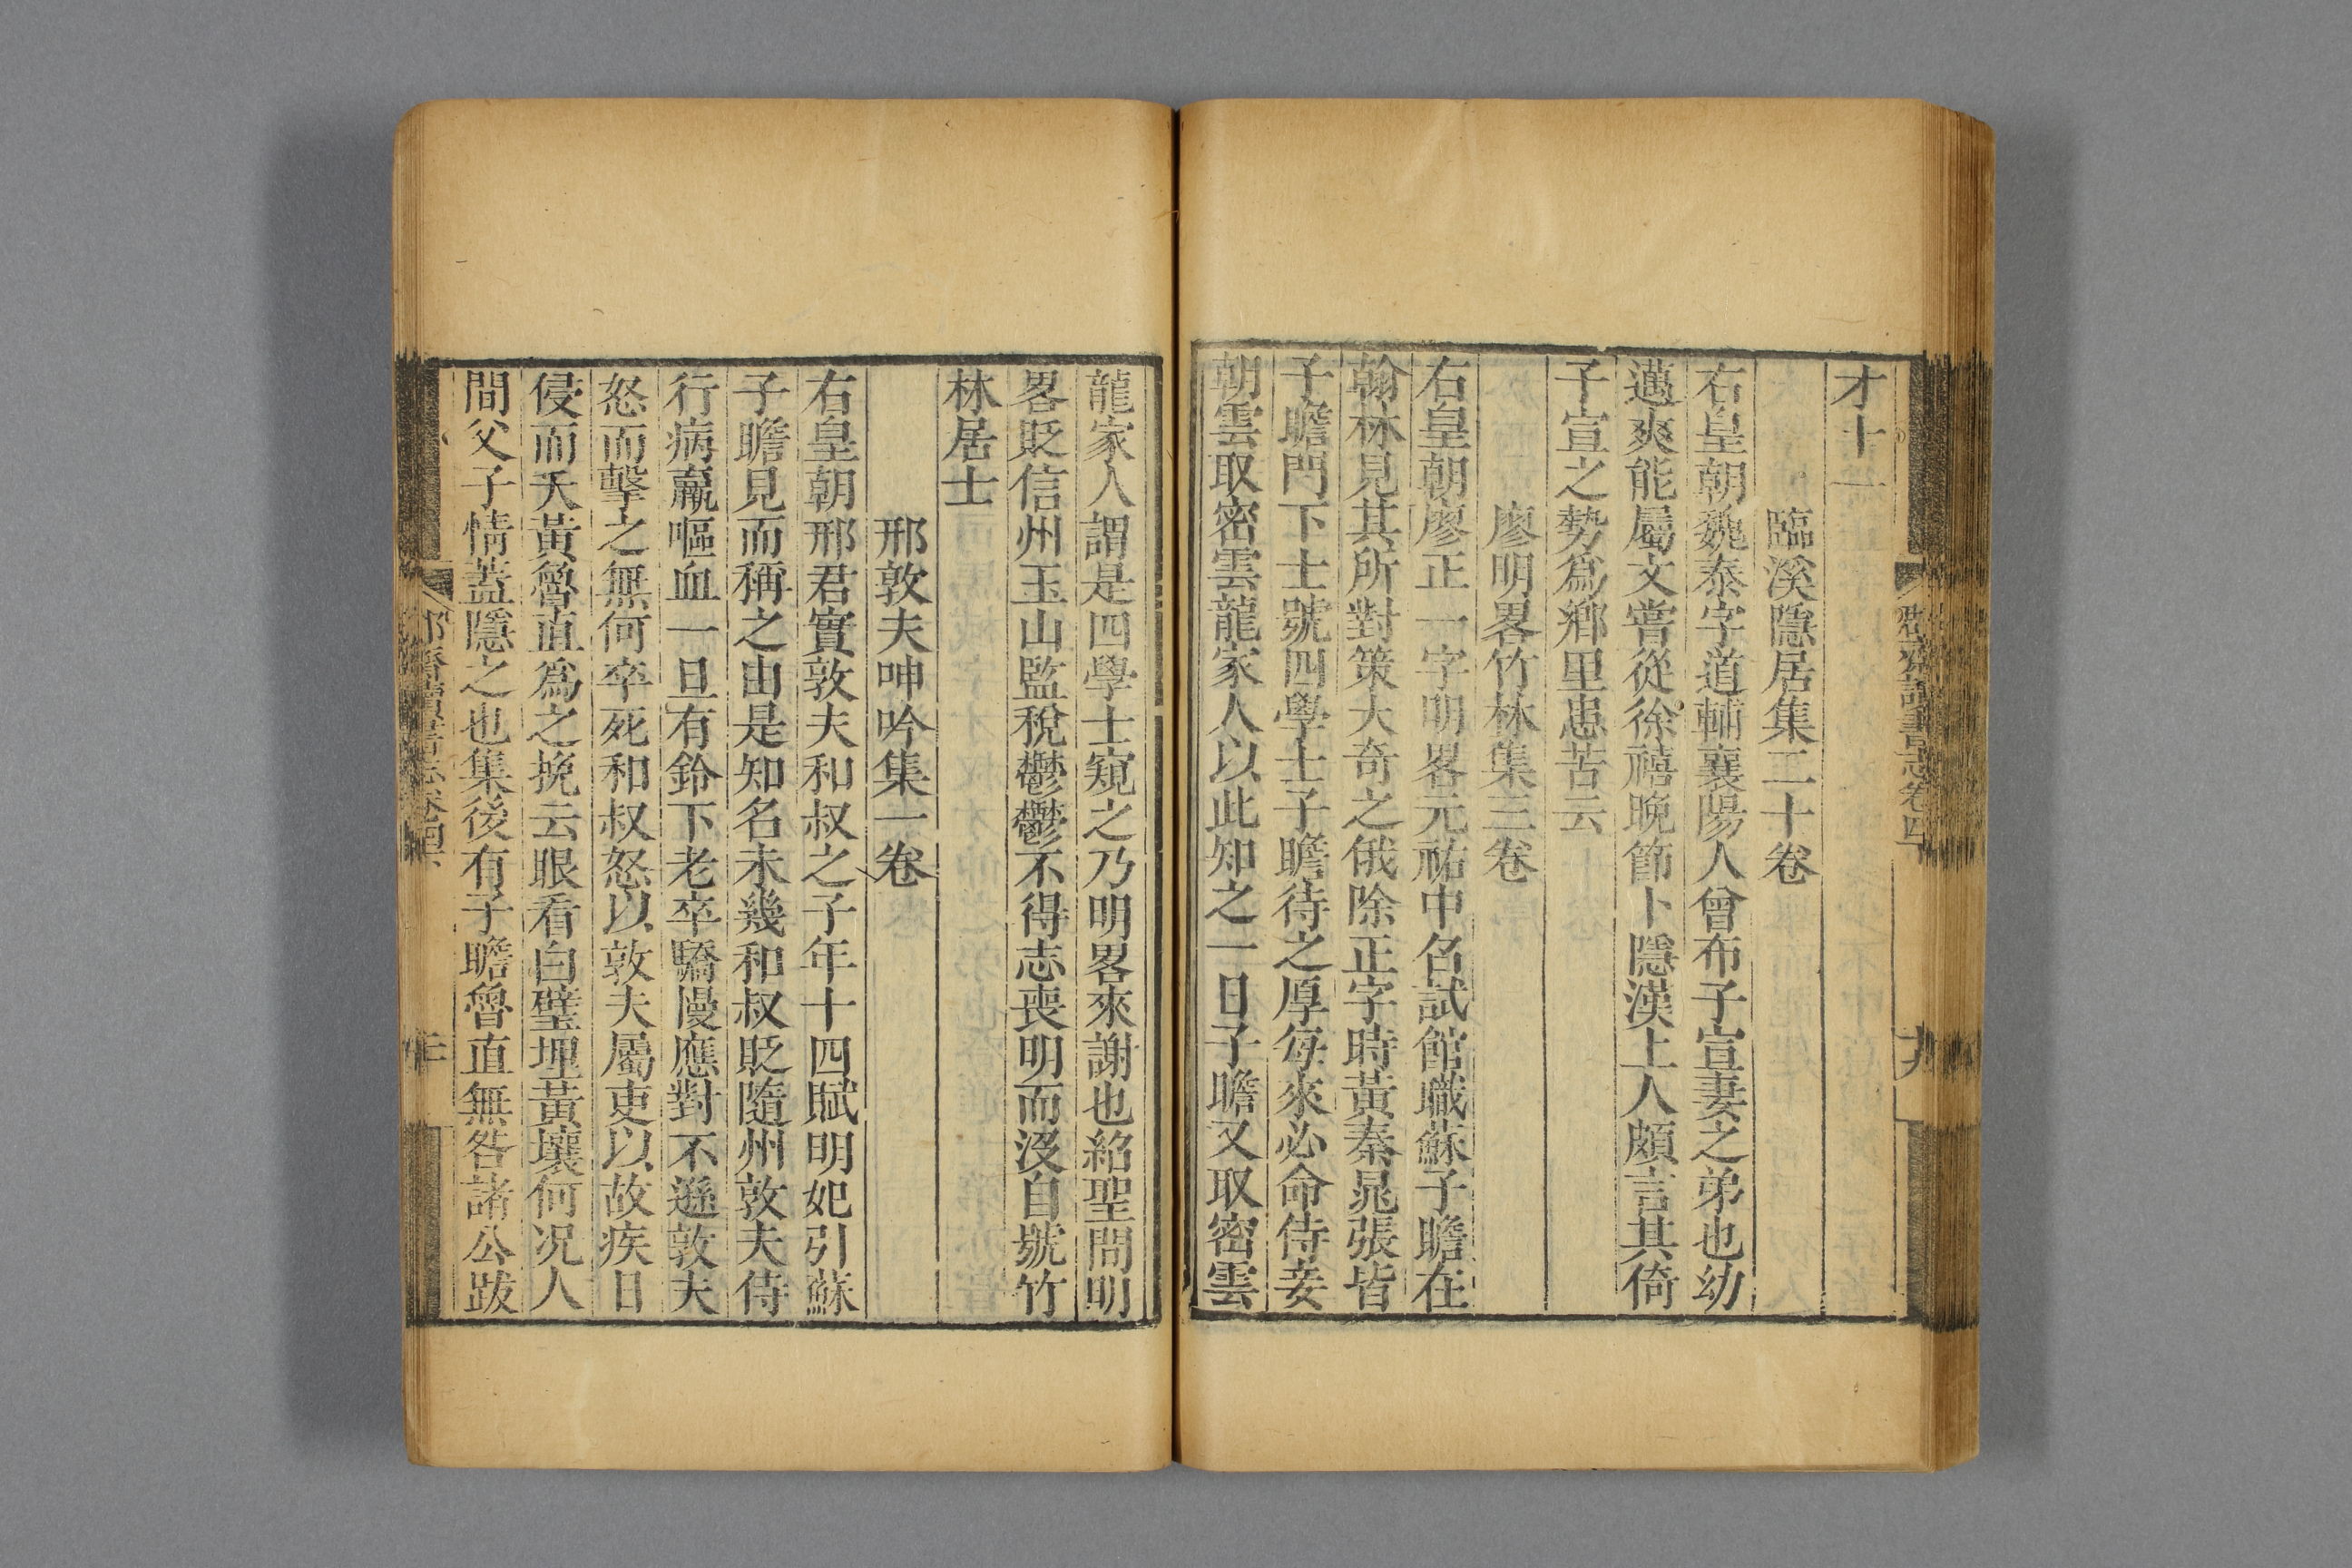 才十一
臨溪隱居集二十卷
右皇朝魏泰字道輔襄陽人曾布子宣妻之弟也幼
邁爽能屬文嘗從徐禧晚節卜隱漢上人頗言其倚
子宣之勢爲鄉里患苦云
廖明畧竹林集三卷
右皇朝廖正一字明畧元祐中召試館職蘇子瞻在
翰林見其所對策大奇之俄除正字時黃秦晁張皆
子瞻門下士號四學士子瞻待之厚每來必命侍妾
朝雲取密雲龍家人以此知之一日子瞻又取密雲
龍家人謂是四學士窺之乃明畧來謝也紹聖間明
畧貶信州玉山監稅鬱鬱不得志喪明而沒自號竹
林居士
邢敦夫呻吟集一卷
右皇朝邢君實敦夫和叔之子年十四賦明妃引蘇
子瞻見而稱之由是知名未幾和叔貶隨州敦夫侍
行病羸嘔血一旦有鈴下老卒驕慢應對不遜敦夫
怒而擊之無何卒死和叔怒以敦夫屬吏以故疾日
侵而夭黃魯直爲之挽云眼看白璧埋黃壤何况人
間父子情蓋隱之也集後有子瞻魯直無咎諸公跋